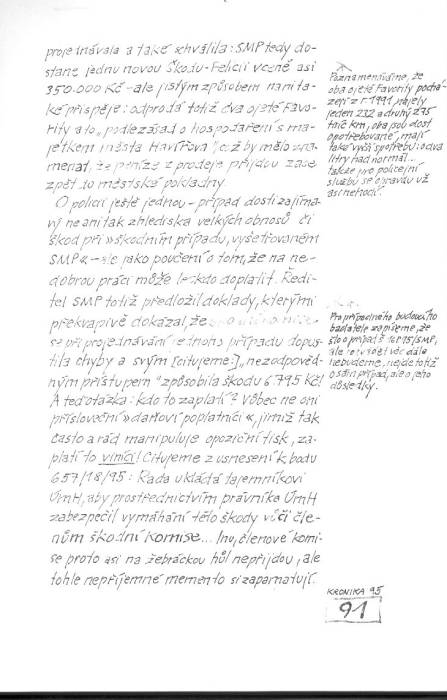 projednávala a také schválila: SMP tedy do-
stane jednu novou Škodu-Felicii v ceně asi
350.000 Kč - ale jistým způsobem na ni ta-
ké přispěje: odprodá totiž dva ojeté Favo-
rity a to „podle zásad o hospodaření s ma-
jetkem města Havířova", což by mělo zna-
menat, že peníze z prodeje přijdou zase
zpět do městské pokladny.
O policii ještě jednou - případ dosti zajíma-
vý ne ani tak z hlediska velkých obnosů či
škod při »škodním případu, vyšetřovaném
SMP« - ale jako poučení o tom, že na ne-
dobrou práci může leckdo doplatit. Ředi-
tel SMP totiž předložil doklady, kterými
překvapivě dokázal, že
se při projednávání jednoho případu dopus-
tila chyby a svým [citujeme:] „nezodpověd-
ným přístupem" způsobila škodu 6795 Kč!
A teď otázka: kdo to zaplatí? Vůbec ne oni
přísloveční »daňoví poplatníci«, jimiž tak
často a rád manipuluje opoziční tisk, za-
platí to viníci! Citujeme z usnesení k bodu
657/18/95: Rada ukládá tajemníkovi
ÚmH, aby prostřednictvím právníka ÚmH
zabezpečil vymáhání této škody vůči čle-
nům škodní komise... Inu, členové komi-
se proto asi na žebráckou hůl nepřijdou, ale
tohle nepříjemné memento si zapamatují.
Poznamenáváme, že
oba ojeté Favority pochá-
zejí z r. 1991, najely
jeden 232 a druhý 235
tisíc km, oba jsou dost
opotřebované, mají
také vyšší spotřebu: o dva
litry nad normál...
takže pro policejní
službu se opravdu už
asi nehodí.
Pro případného budoucího
badatele zapišeme, že
šlo o případ č. 1015/SMP,
ale
nebudeme, nejde totiž
o sám případ, ale o jeho
důsledky.
KRONIKA 95
91